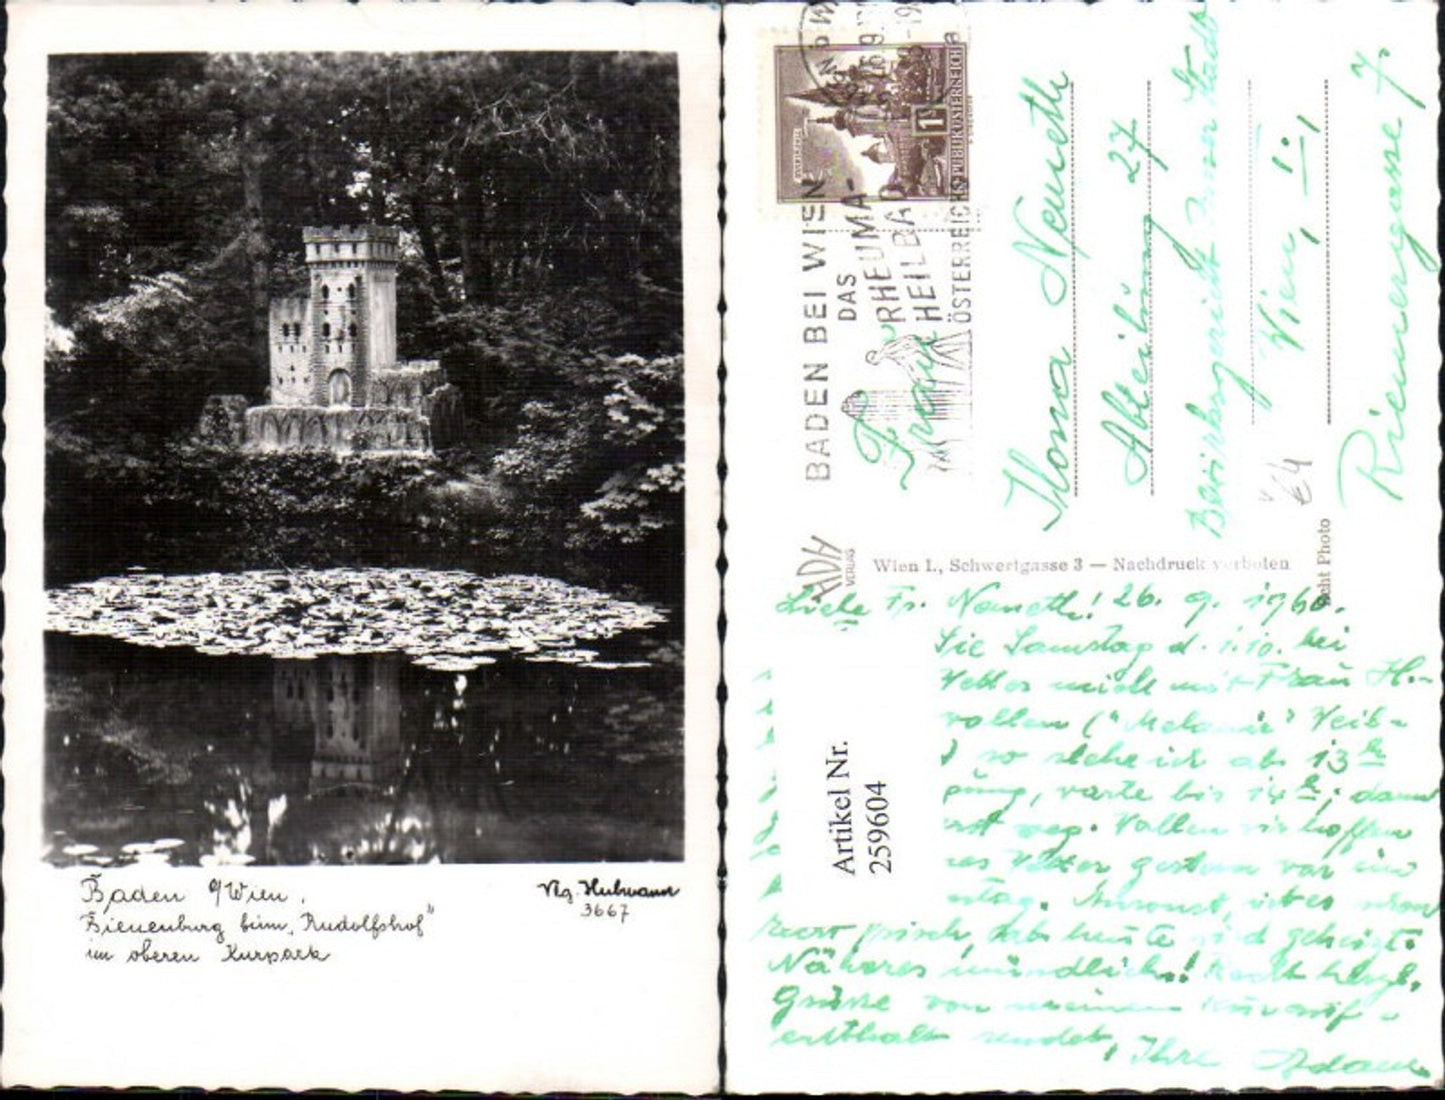 Baden b/Wien.
Bienenburg beim „Rudolfshof"
im oberen Kurpark
Vlg. Hubmann
3667
BADEN BEI WIEN
DAS
RHEUMA-
HEILBAD
ÖSTERREICHS
REPUBLIK ÖSTERREICH
Frau
Ilona Nemeth
Abteilung 27
Bezirksgericht Innere Stadt
Wien, I.,
Riemergasse 7.
VERLAG
Wien I., Schwertgasse 3 — Nachdruck verboten
Echt Photo
Artikel Nr.
259604
Liebe Fr. Nemeth! 26. 9. 1960.
Sie Samstag d. 1.10. bei
mich mit Frau H.-
wollen
so stehe ich ab 13 h
warte bis 14 h; dann
weg. Wir hoffen
gestern war ein
frisch, heute wird geheizt.
Näheres mündlich! Recht herzl.
Grüsse von meinem Kurauf-
enthalt sendet, Ihre